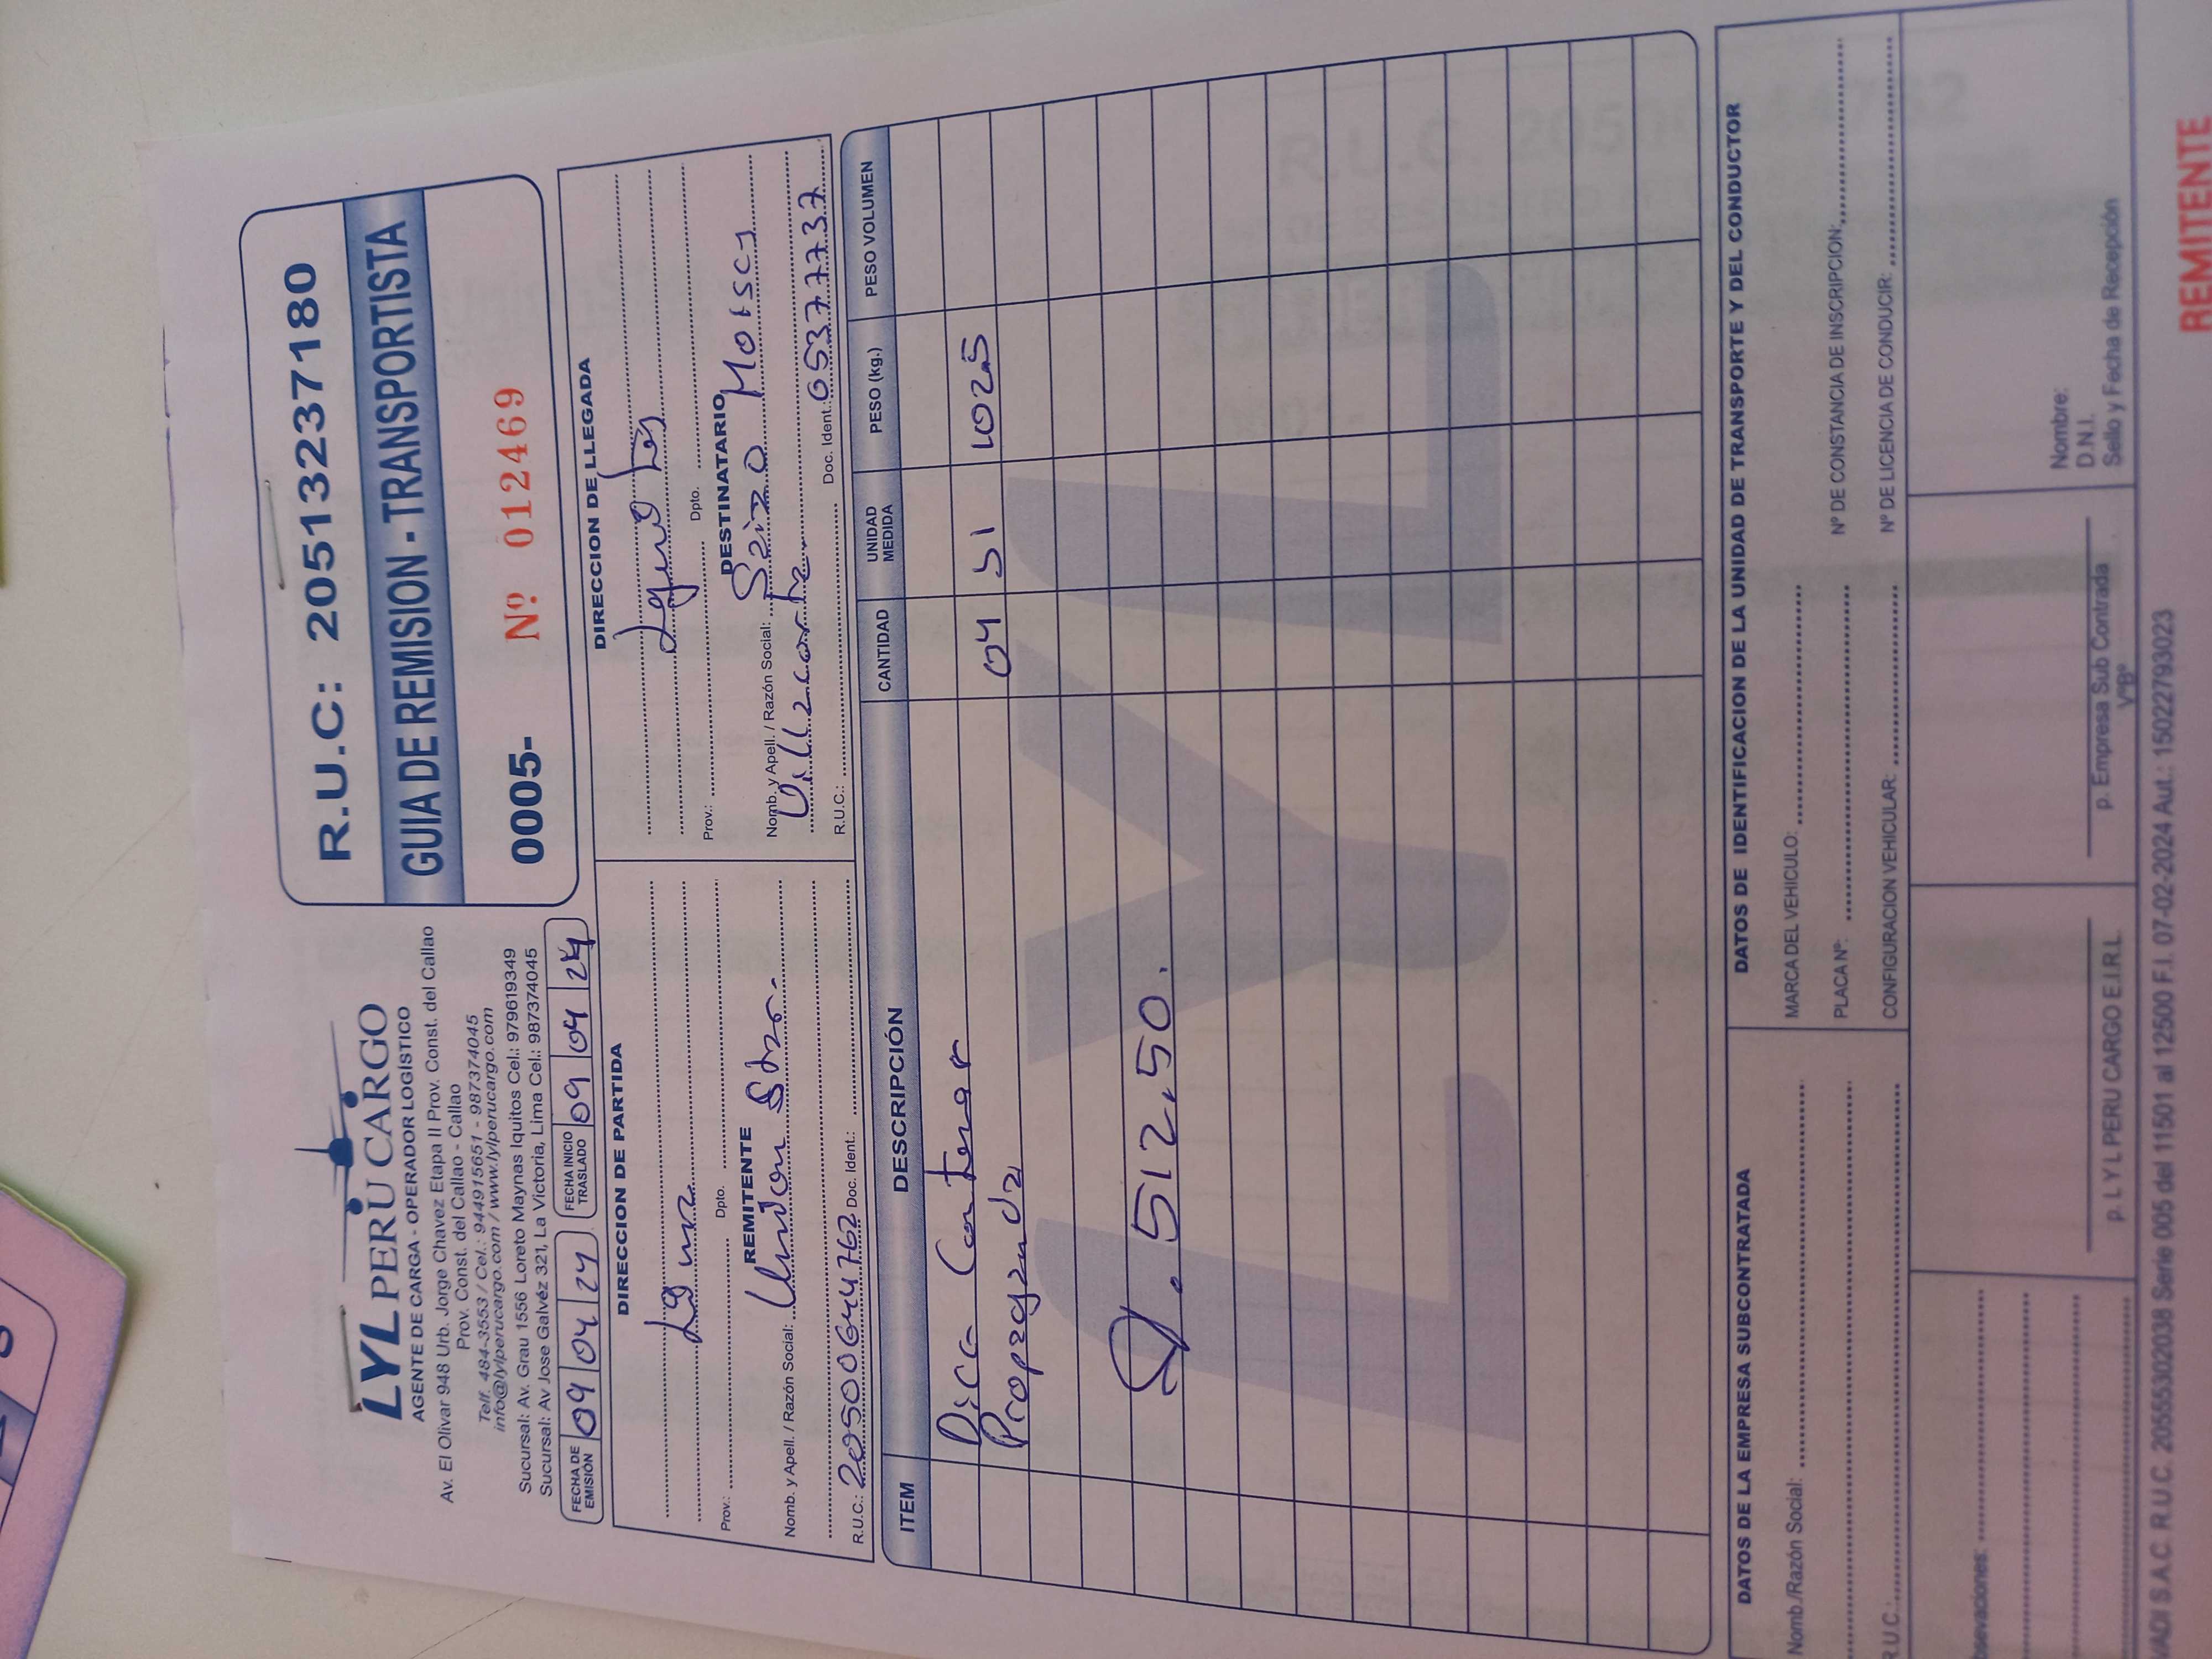 LYL PERU CARGO
AGENTE DE CARGA - OPERADOR LOGÍSTICO
Av. El Olivar 948 Urb. Jorge Chavez Etapa II Prov. Const. del Callao
Prov. Const. del Callao - Callao
Telf. 484-3553 / Cel.: 944915651 - 987374045
info@lylperucargo.com / www.lylperucargo.com
Sucursal: Av. Grau 1556 Loreto Maynas Iquitos Cel.: 979619349
Sucursal: Av Jose Galvéz 321, La Victoria, Lima Cel.: 987374045
R.U.C: 20513237180
GUIA DE REMISION - TRANSPORTISTA
0005- Nº 012469
FECHA DE EMISIÓN 09 04 24
FECHA INICIO TRASLADO 09 04 24
DIRECCION DE PARTIDA
Prov.: Dpto.
REMITENTE
Nomb. y Apell. / Razón Social: Union Star.
R.U.C.: 20500644762 Doc. Ident.:
DIRECCION DE LLEGADA
Prov.: Dpto.
DESTINATARIO
Nomb. y Apell. / Razón Social: Moises
R.U.C.: Doc. Ident.:
ITEM DESCRIPCIÓN CANTIDAD UNIDAD MEDIDA PESO (kg.) PESO VOLUMEN
Dice Contener 04
Propaganda
512.50.
DATOS DE LA EMPRESA SUBCONTRATADA
Nomb./Razón Social:
R.U.C.:
DATOS DE IDENTIFICACION DE LA UNIDAD DE TRANSPORTE Y DEL CONDUCTOR
MARCA DEL VEHICULO:
PLACA Nº: Nº DE CONSTANCIA DE INSCRIPCION:
CONFIGURACION VEHICULAR: Nº DE LICENCIA DE CONDUCIR:
p. L Y L PERU CARGO E.I.R.L.
p. Empresa Sub Contrada
VºBº
Nombre:
D.N.I.
Sello y Fecha de Recepción
S.A.C. R.U.C. 20555302038 Serie 005 del 11501 al 12500 F.I. 07-02-2024 Aut.: 15022793023
REMITENTE